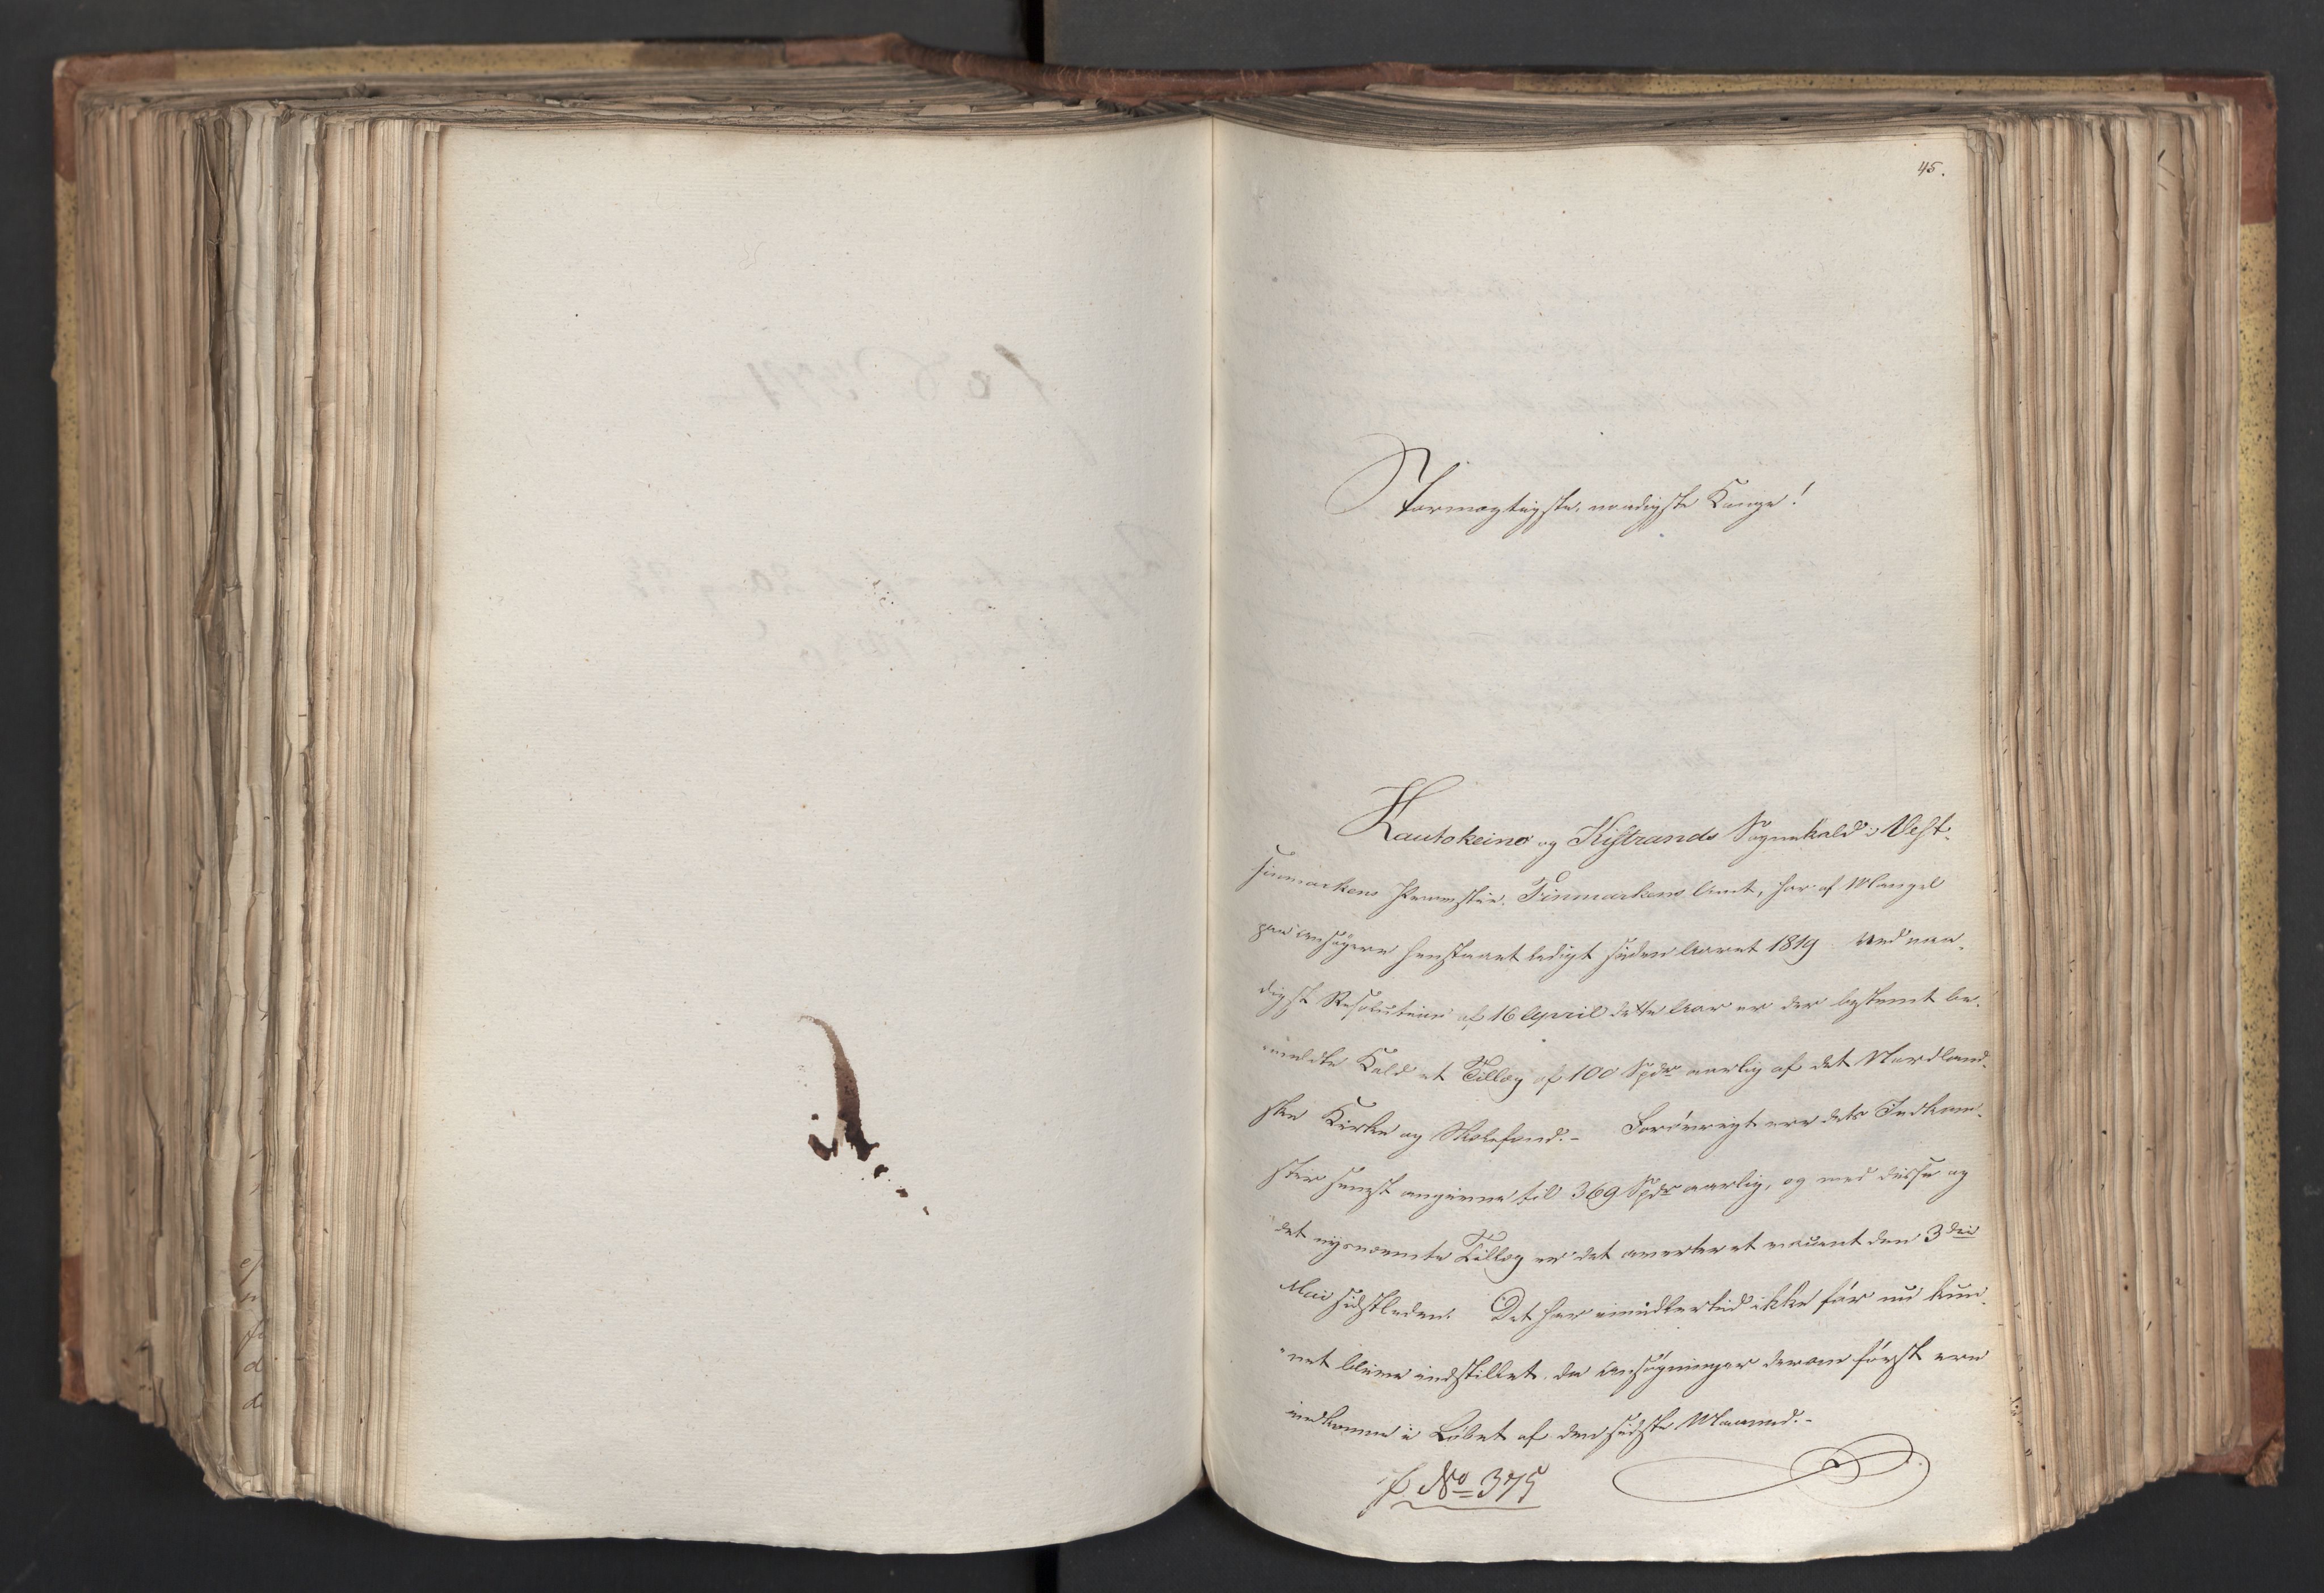 45.
Stormægtigste, naadigste Konge!
Kautokeino og Kistrands Sognekald i Vest-
finmarkens Provstie, Finmarkens Amt, har af Mangel
paa Ansøgere henstaaet ledigt siden Aaret 1819. Ved naa-
digst Resolution af 16 April dette Aar er der bestemt be-
meldte Kald et Tillæg af 100 Spdr aarlig af det Nordland-
ske Kirke og Skolefond. - Forøvrigt ere dets Indkom-
ster senest angivne til 369 Spdr aarlig, og med disse og
det nysnævnte Tillæg er det averteret vacant den 3die
Mai sidstleden. Det har imidlertid ikke før nu kun-
net blive indstillet, da Ansøgninger derom først ere
indkomne i Løbet af den sidste Maaned. -
No 375